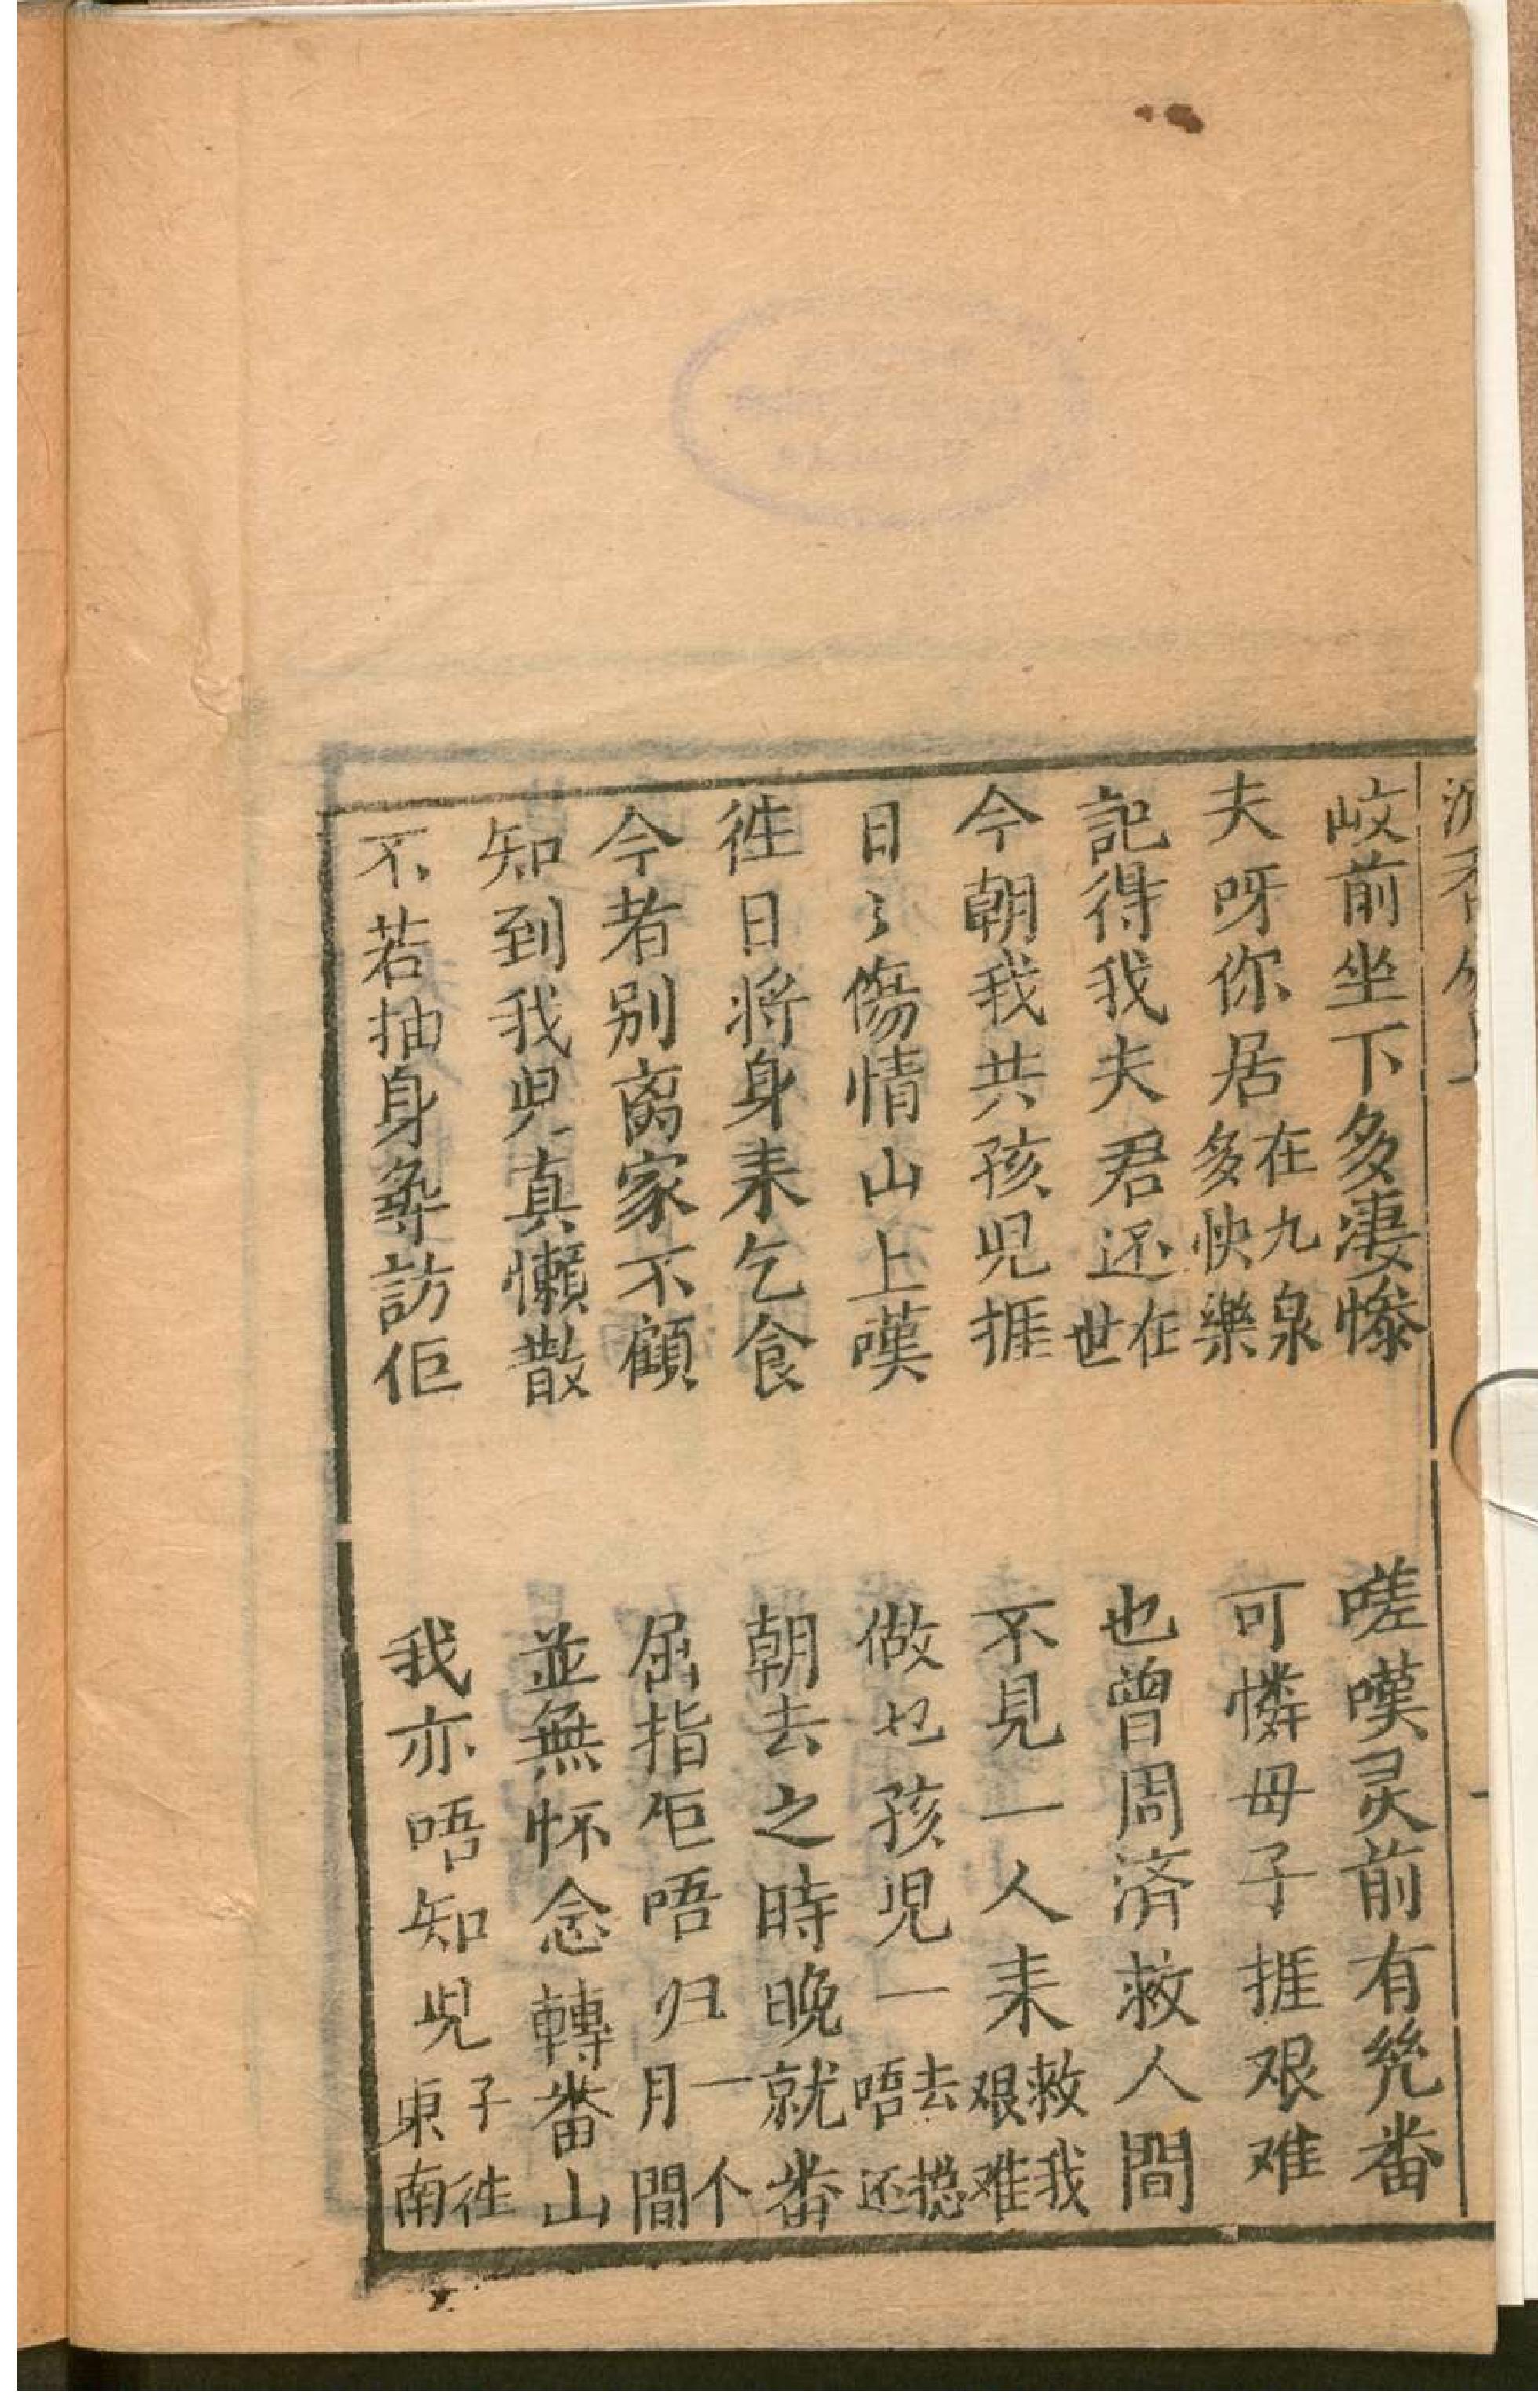 岐前坐下多凄慘 嗟嘆灵前有𠒇番
夫呀你居在九泉多快樂 可憐毋子捱艰难
記得我夫君还在世 也曾周済救人間
今朝我共孩児捱 不見一人耒救我艰难
日〻傷情山上嘆 做乜孩児一去㧾唔还
徃日将身耒乞食 朝去之時晚就畨
今者別离家不顧 屈指佢唔归一个月間
知到我児真懶散 並無怀念轉畨山
不若抽身尋訪佢 我亦唔知児子徃東南